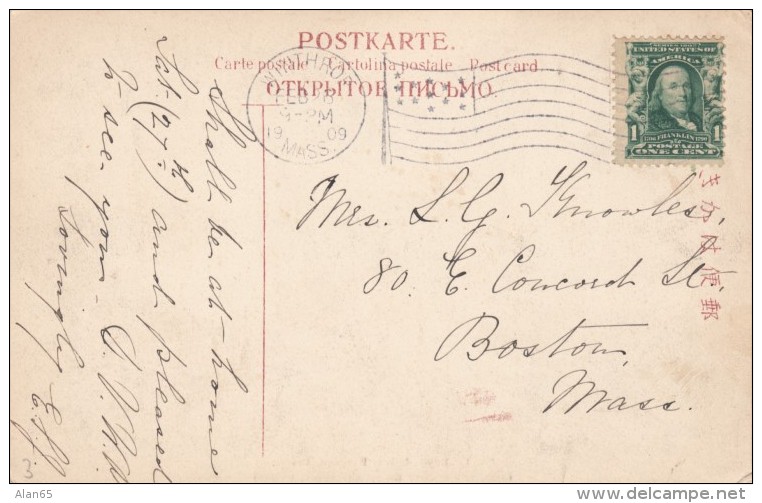 POSTKARTE.
Carte postale Cartolina postale Postcard
ОТКРЫТОЕ ПИСЬМО
WINTHROP
FEB 8
PM
1909
MASS.
SERIES 1902
UNITED STATES OF AMERICA
1 1
1706 FRANKLIN 1790
POSTAGE
ONE CENT
きがは便郵
Mrs. L. G. Knowles,
80. E. Concord St.,
Boston,
Mass.
Shall be at-home
Sat. (27th) and pleased
to see you -
Lovingly
3
Alan65
delcampe.net